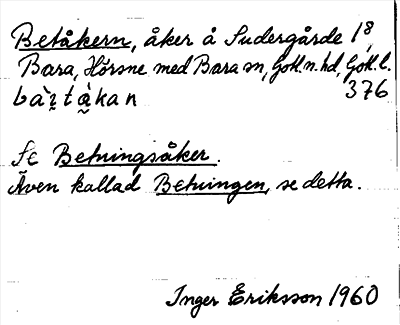 Betåkern, åker å Sudergårde 1⁸,
Bara, Hörsne med Bara sn, Gotl. n. hd, Gotl. l.
bàı̨tå̀kan 376
Se Betningsåker.
Även kallad Betningen, se detta.
Inger Eriksson 1960